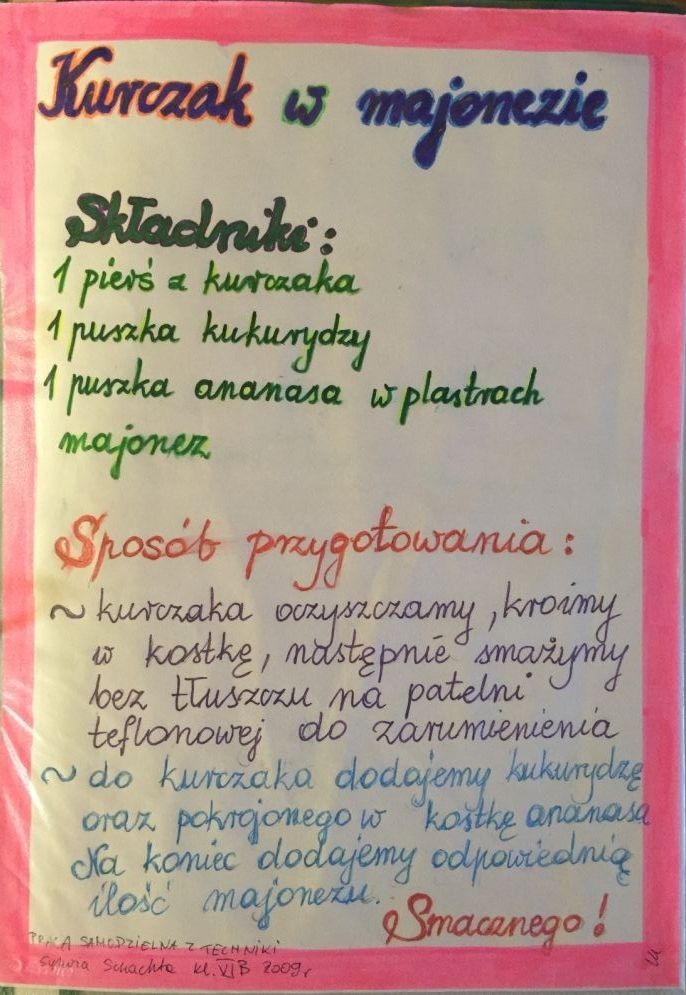 Kurczak w majonezie
Składniki:
1 pierś z kurczaka
1 puszka kukurydzy
1 puszka ananasa w plastrach
majonez
Sposób przygotowania:
~ kurczaka oczyszczamy, kroimy
w kostkę, następnie smażymy
bez tłuszczu na patelni
teflonowej do zarumienienia
~ do kurczaka dodajemy kukurydzę
oraz pokrojonego w kostkę ananasa
Na koniec dodajemy odpowiednią
ilość majonezu.
Smacznego!
PRACA SAMODZIELNA Z TECHNIKI
Schachta kl. VI B 2009r